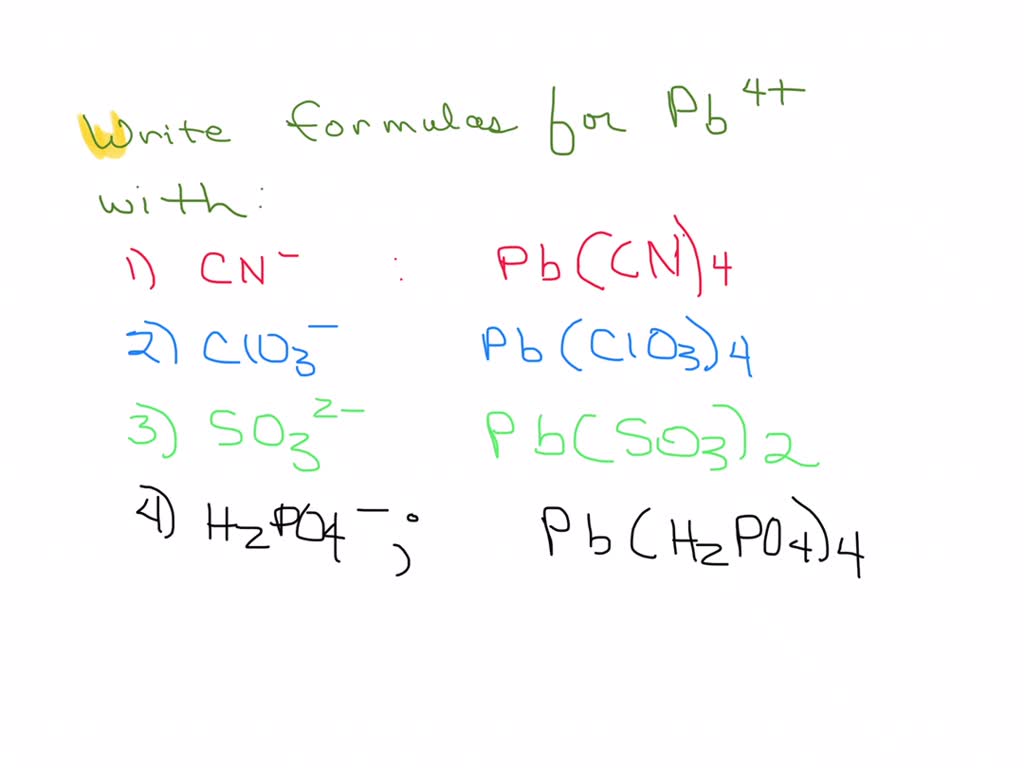 Write formulas for Pb⁴⁺
with:
1) CN⁻ : Pb(CN)₄
2) ClO₃⁻ Pb(ClO₃)₄
3) SO₃²⁻ Pb(SO₃)₂
4) H₂PO₄⁻ ; Pb(H₂PO₄)₄